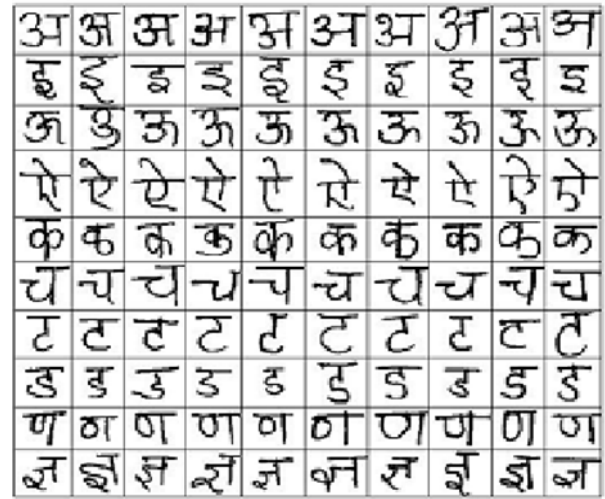 अ अ अ अ अ अ अ अ अ अ
इ इ इ इ इ इ इ इ इ इ
ऊ ऊ ऊ ऊ ऊ ऊ ऊ ऊ ऊ ऊ
ऐ ऐ ऐ ऐ ऐ ऐ ऐ ऐ ऐ ऐ
क क क क क क क क क क
च च च च च च च च च च
ट ट ट ट ट ट ट ट ट ट
ड ड ड ड ड ड ड ड ड ड
ण ण ण ण ण ण ण ण ण ण
ज्ञ ज्ञ ज्ञ ज्ञ ज्ञ ज्ञ ज्ञ ज्ञ ज्ञ ज्ञ